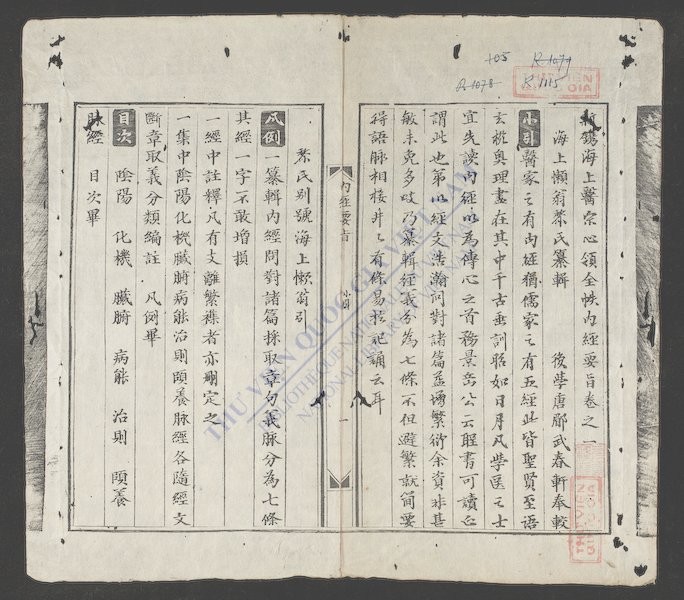 新鐫海上醫宗心領全帙內經要旨卷之一
海上懶翁黎氏纂輯 後學唐郿武春軒奉較
小引 醫家之有內經猶儒家之有五經此皆聖賢至語
玄機奧理盡在其中千古垂訓昭如日月凡學医之士
宜先讀內經以為傳心之首務景岳公云醫書可讀正
謂此也第以經文浩瀚問對諸篇益增繁衍余資非甚
敏未免多岐乃纂輯經義分為七條不但避繁就簡要
得語脉相接井々有條易於記誦云耳
內經要旨 小引 一
黎氏別號海上懶翁引
凡例 一纂輯內經問對諸篇採取章句義脉分為七條
其經一字不敢增損
一經中註釋凡有支離繁襍者亦刪定之
一集中陰陽化機臟腑病能治則頤養脉經各隨經文
斷章取義分類編註 凡例畢
目次 陰陽 化機 臟腑 病能 治則 頤養
脉經 目次畢
105
R.1079
R.1078
R.1115
THƯ VIỆN QUỐC GIA VIỆT NAM
BIBLIOTHÈQUE NATIONALE DU VIETNAM
NATIONAL LIBRARY OF VIETNAM